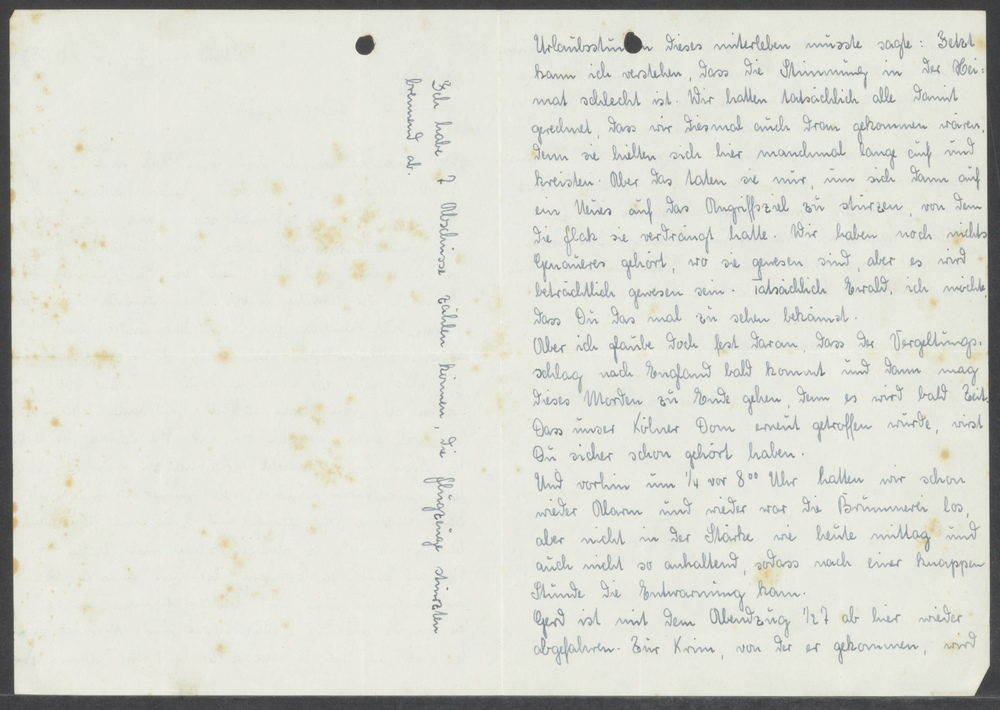 Urlaubsstunden dieses miterleben musste sagte: Jetzt
kann ich verstehen, dass die Stimmung in der Hei-
mat schlecht ist. Wir hatten tatsächlich alle damit
gerechnet, dass wir diesmal auch dran gekommen wären,
denn sie hielten sich hier manchmal lange auf und
kreisten. Aber das taten sie nur, um sich dann auf
ein Neues auf das Angriffsziel zu stürzen, von dem
die Flak sie verdrängt hatte. Wir haben noch nichts
Genaueres gehört, wo sie gewesen sind, aber es wird
beträchtlich gewesen sein. Tatsächlich Ewald, ich möchte,
dass Du das mal zu sehen bekämst.
Aber ich glaube doch fest daran, dass der Vergeltungs-
schlag nach England bald kommt und dann mag
dieses Morden zu Ende gehen, denn es wird bald Zeit.
Dass unser Kölner Dom erneut getroffen wurde, wirst
Du sicher schon gehört haben.
Und vorhin um 1/4 vor 8⁰⁰ Uhr hatten wir schon
wieder Alarm und wieder war die Brummerei los,
aber nicht in der Stärke wie heute mittag und
auch nicht so anhaltend, sodass nach einer knappen
Stunde die Entwarnung kam.
Gerd ist mit dem Abendzug 1/2 7 ab hier wieder
abgefahren. Zur Krim, von der er gekommen, wird
Ich habe 7 Abschüsse zählen können, die Flugzeuge stürzten
brennend ab.